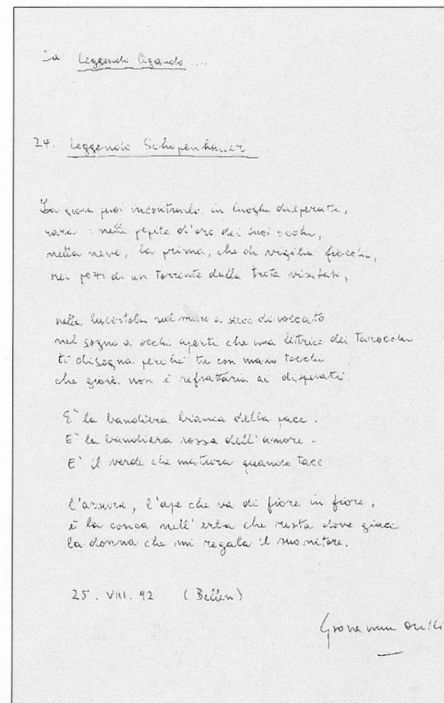 Da Leggendo Cigando ...
24. Leggendo Schopenhauer
La gioia puoi incontrarla in luoghi disperati,
rara: nelle pepite d'oro dei suoi occhi,
nella neve, la prima, che di vigilia fiocchi,
nei pozzi di un torrente dalla trota visitati,
nella lucertola sul muro a secco
nel sogno a occhi aperti che una lettrice dei tarocchi
ti disegna perché tu con mano tocchi
che gioia non è refrattaria ai disperati
E' la bandiera bianca della pace.
E' la bandiera rossa dell'amore.
E' il verde che matura quando tace
l'arsura, l'ape che va di fiore in fiore,
è la conca nell'erba che resta dove giace
la donna che mi regala il suo nitore.
25. VIII. 92 (Bellin)
Giovanni Orelli